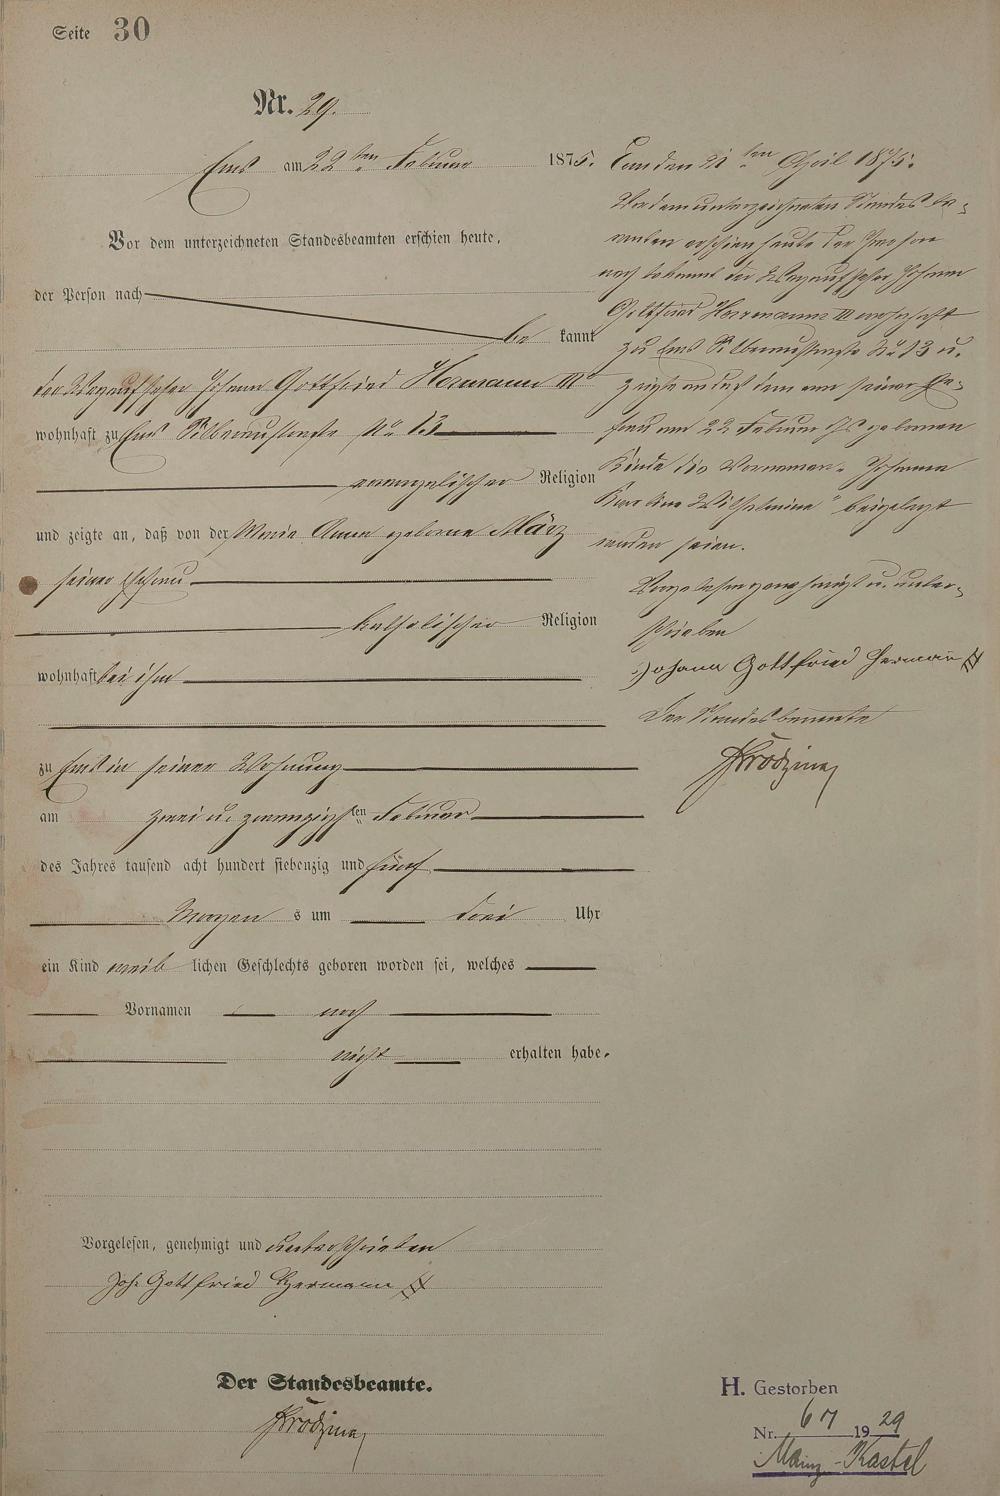 Seite 30
Nr. 29.
Ems am 22ten Februar 1875.
Vor dem unterzeichneten Standesbeamten erschien heute,
der Person nach
be kannt
der Wegaufseher Johann Gottfried Hermann III
wohnhaft zu Ems Silberaustraße No 13
evangelischer Religion
und zeigte an, daß von der Maria Anna geborne März
seiner Ehefrau
katholischer Religion
wohnhaft bei ihm
zu Ems in seiner Wohnung
am zwei u. zwanzigsten Februar
des Jahres tausend acht hundert siebenzig und fünf
Morgen s um drei Uhr
ein Kind weib lichen Geschlechts geboren worden sei, welches
Vornamen noch
nicht erhalten habe.
Vorgelesen, genehmigt und unterschrieben
Joh. Gottfried Hermann
Der Standesbeamte.
Ems den 21ten April 1875.
Vor dem unterzeichneten Standesbe-
amten erschien heute der Person
nach bekannt der Wegaufseher Johann
Gottfried Herrmann III wohnhaft
zu Ems Silberaustraße No 13 u.
zeigte an daß dem von seiner Ehe-
frau am 22 Februar Js geborenen
Kinde die Vornamen „Johanna
Karoline Wilhelmine" beigelegt
worden seien.
Vorgelesen genehmigt u. unter-
schrieben
Johann Gottfried Hermann
Der Standesbeamte
H. Gestorben
Nr. 67 1929
Mainz-Kastel